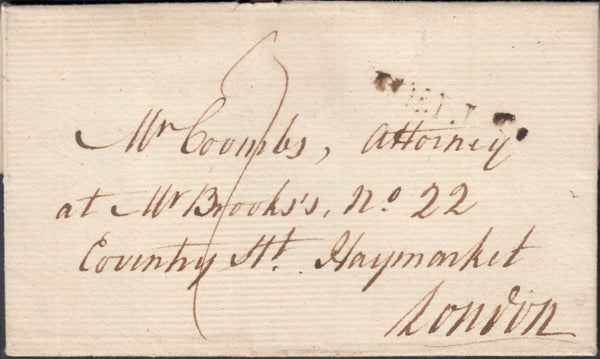 Mr Coombs, Attorney
at Mr Brooks's, No 22
Coventry Stt. Haymarket
London